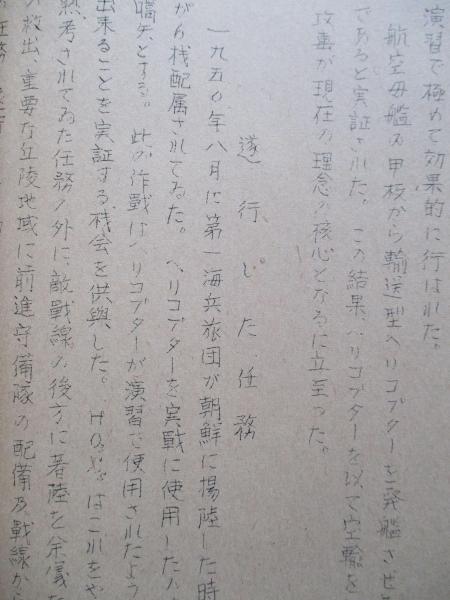 演習で極めて効果的に行はれた。
航空母艦の甲板から輸送型ヘリコプターを発艦させ
であると実証された。この結果、ヘリコプターを以て空輸を
攻撃が現在の理念の核心となるに立至った。
遂行した任務
一九五〇年八月に第一海兵旅団が朝鮮に揚陸した時
が四桟配属されてゐた。ヘリコプターを実戦に使用した
嚆矢とする。此の作戰はヘリコプターが演習で使用されたよう
出来ることを実証する桟会を供與した。はこれをや
熟考されてゐた任務の外に、敵戰線の後方に着陸を余儀
救出、重要な丘陵地域に前進守備隊の配備及戰線から